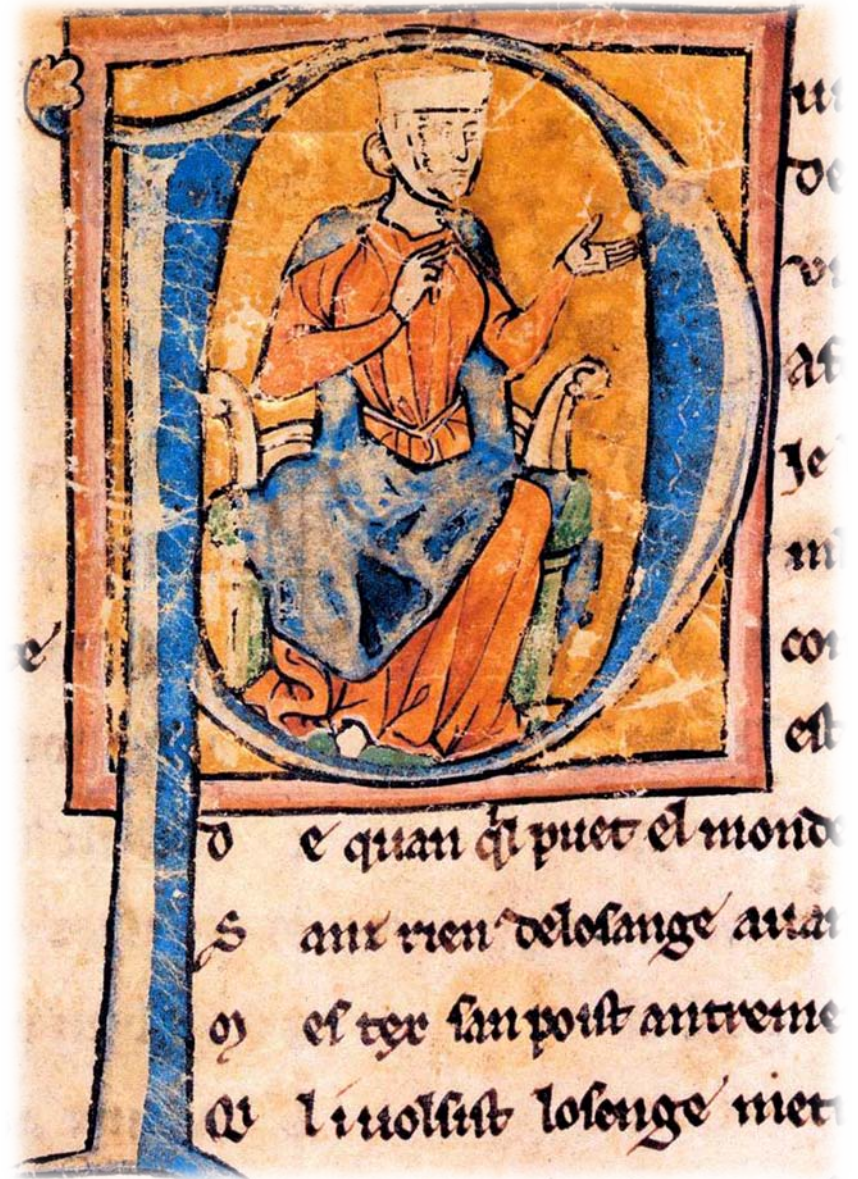 P
de
Je
est
De quan q̃l puet el monde
Sanz rien de losange auan
Mes tex san poist antreme
Q̃ li uolsist losenge met